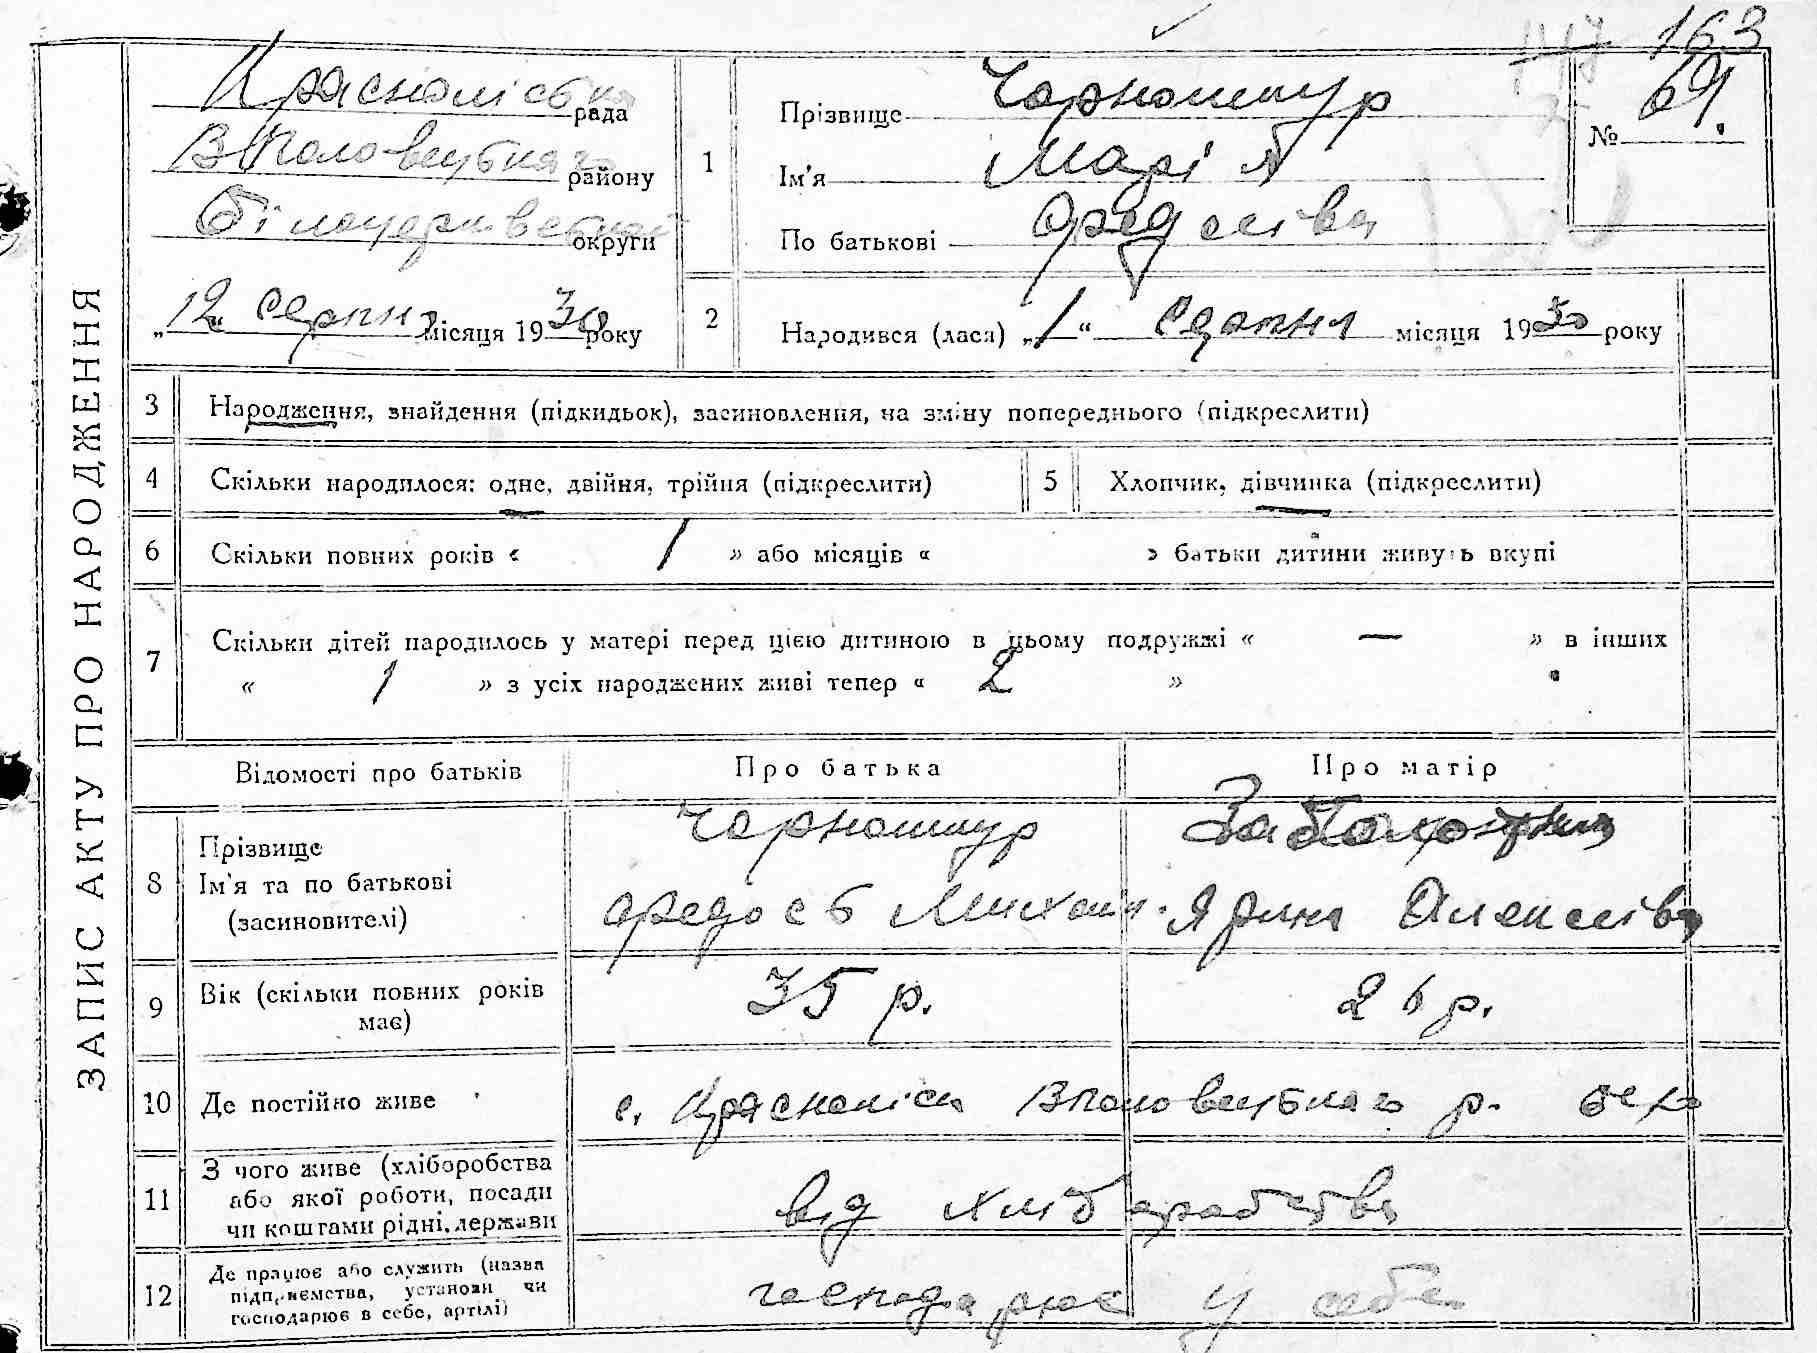 163
ЗАПИС АКТУ ПРО НАРОДЖЕННЯ
Красноліська рада
Вполовецького району
Білоцерківської округи
„12“ Серпня місяця 1930 року
1
Прізвище Чорношкур
Ім'я Марія
По батькові Федосієва
№ 69.
2
Народився (лася) „1“ Серпня місяця 1930 року
3 Народження, знайдення (підкидьок), засиновлення, на зміну попереднього (підкреслити)
4 Скільки народилося: одне, двійня, трійня (підкреслити)
5 Хлопчик, дівчинка (підкреслити)
6 Скільки повних років « 1 » або місяців « » батьки дитини живуть вкупі
7 Скільки дітей народилось у матері перед цією дитиною в цьому подружжі « — » в інших
« 1 » з усіх народжених живі тепер « 2 »
Відомості про батьків Про батька Про матір
8 Прізвище
Ім'я та по батькові
(засиновителі)
Чорношкур
Федось Михайл.
Ярина Олексієва
9 Вік (скільки повних років
має)
35 р. 26 р.
10 Де постійно живе с. Краснеліси Вполовецького р.
11 З чого живе (хліборобства
або якої роботи, посади
чи коштами рідні, держави
від хліборобства
12 Де працює або служить (назва
підприємства, установи чи
господарює в себе, артілі)
господарює у себе